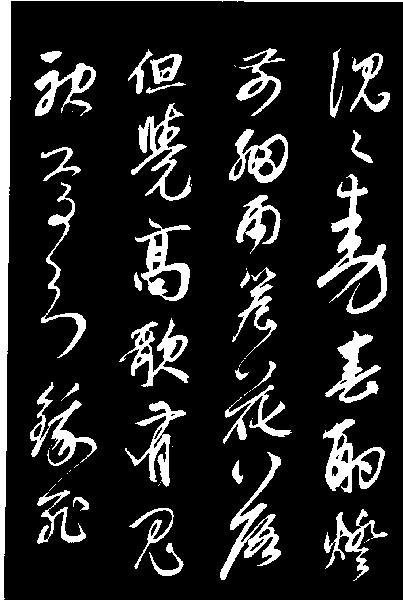 沉々動春酌燈
前細雨簷花落
但覺高歌有鬼
神焉知餓死